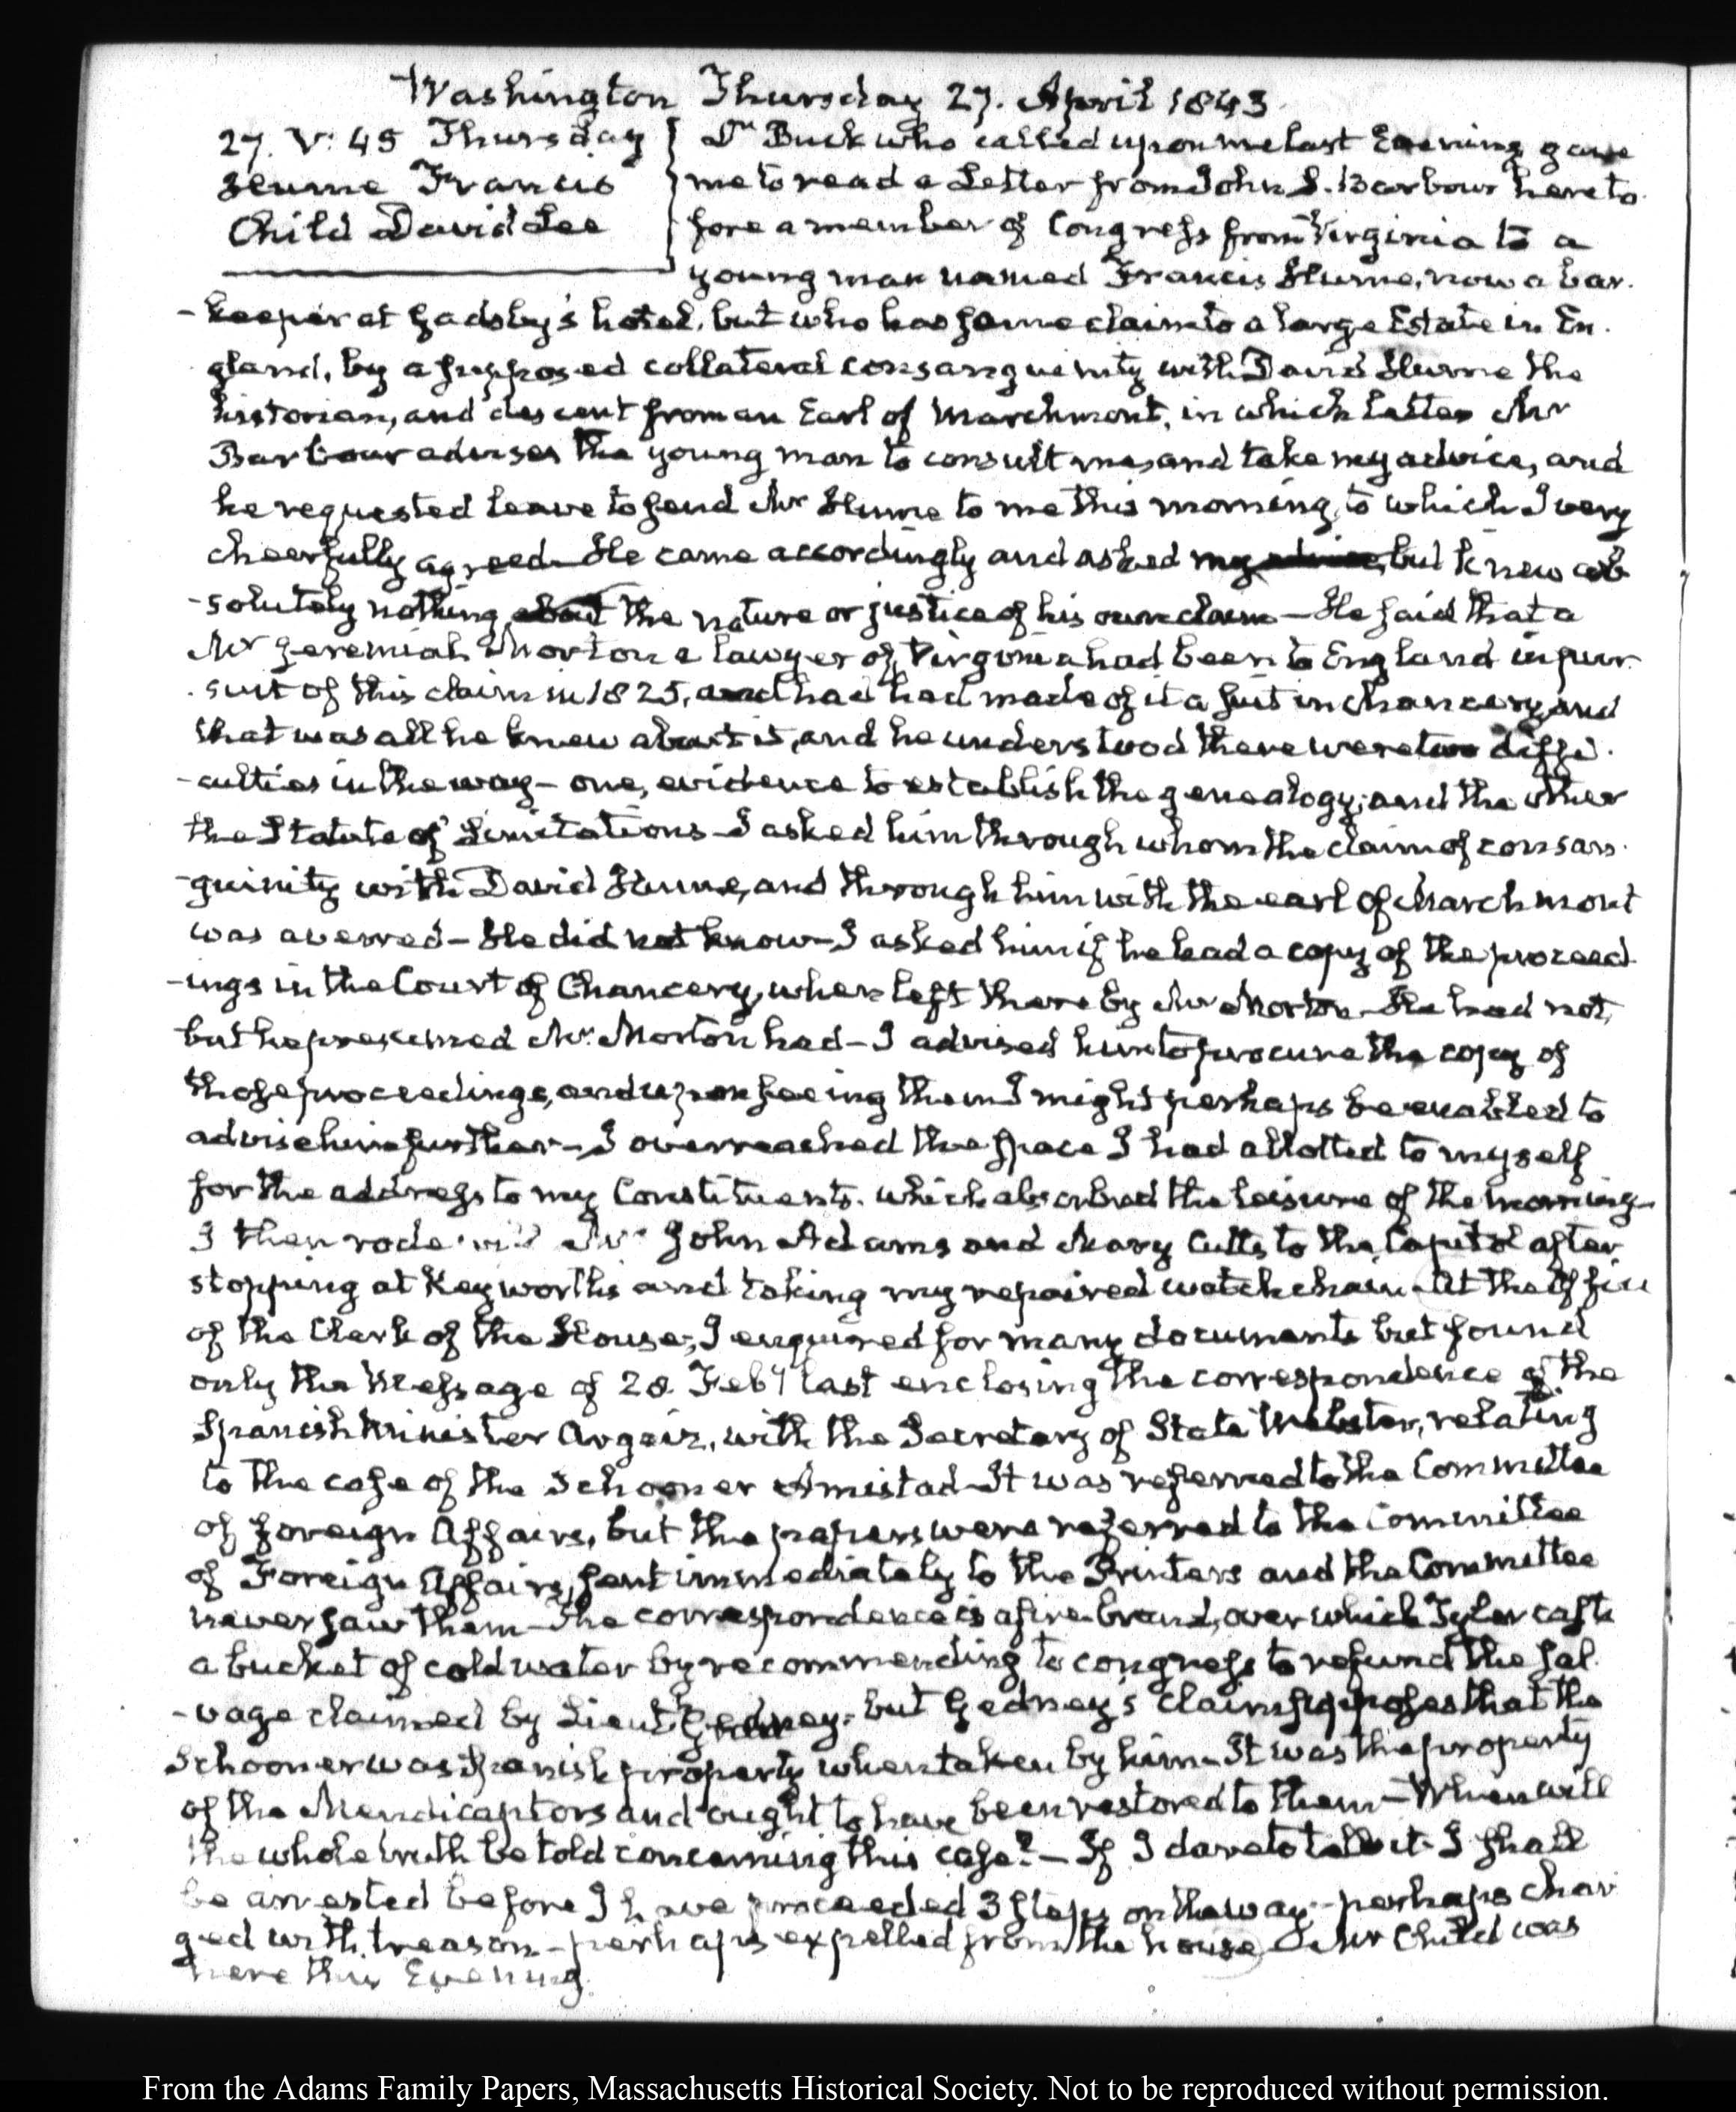 Washington Thursday 27. April 1843.
27. V: 45 Thursday
Hume Francis
Child David Lee
Dr Buck who called upon me last Evening gave
me to read a Letter from John S. Barbour hereto-
fore a member of Congress from Virginia to a
young man named Francis Hume, now a bar-
-keeper at Gadsby's hotel, but who has some claim to a large Estate in En-
gland, by a supposed collateral consanguinity with David Hume the
historian, and descent from an Earl of Marchmont, in which letter Mr
Barbour advises the young man to consult me, and take my advice, and
he requested leave to send Mr Hume to me this morning, to which I very
cheerfully agreed—He came accordingly and asked my advice, but knew ab-
-solutely nothing about the nature or justice of his own claim—He said that a
Mr Jeremiah Morton a lawyer of Virginia had been to England in pur-
suit of this claim in 1825, and had had made of it a suit in chancery, and
that was all he knew about it, and he understood there were two diffi-
-culties in the way—one, evidence to establish the genealogy; and the other
the Statute of Limitations—I asked him through whom the claim of consan-
-guinity with David Hume, and through him with the earl of Marchmont
was averred—He did not know—I asked him if he had a copy of the proceed-
-ings in the Court of Chancery, when left there by Mr Morton—He had not,
but he presumed Mr. Morton had—I advised him to procure the copy of
those proceedings, and upon seeing them I might perhaps be enabled to
advise him further—I overreached the space I had allotted to myself
for the address to my Constituents, which absorbed the leisure of the morning—
I then rode with Mrs John Adams and Mary Cutts, to the Capitol after
stopping at Keyworth's and taking my repaired watch chain—At the Office
of the Clerk of the House, I enquired for many documents but found
only the Message of 28. Feby last enclosing the correspondence of the
Spanish Minister Argaiz, with the Secretary of State Webster, relating
to the case of the Schooner Amistad—It was referred to the Committee
of foreign Affairs, but the papers were referred to the Committee
of Foreign Affairs, sent immediately to the Printers and the Committee
never saw them—The correspondence is a fire-brand, over which Tyler casts
a bucket of cold water by recommending to congress to refund the sal-
-vage claimed by Lieut Gedney—but Gedney's claim supposes that the
Schooner was Spanish property when taken by him—It was the property
of the Mendi captors and ought to have been restored to them—When will
the whole truth be told concerning this case?—If I dare to tell it I shall
be arrested before I have proceeded 3 steps on the way—perhaps char-
ged with treason—perhaps expelled from the house—Mr Child was
here this Evening.
From the Adams Family Papers, Massachusetts Historical Society. Not to be reproduced without permission.